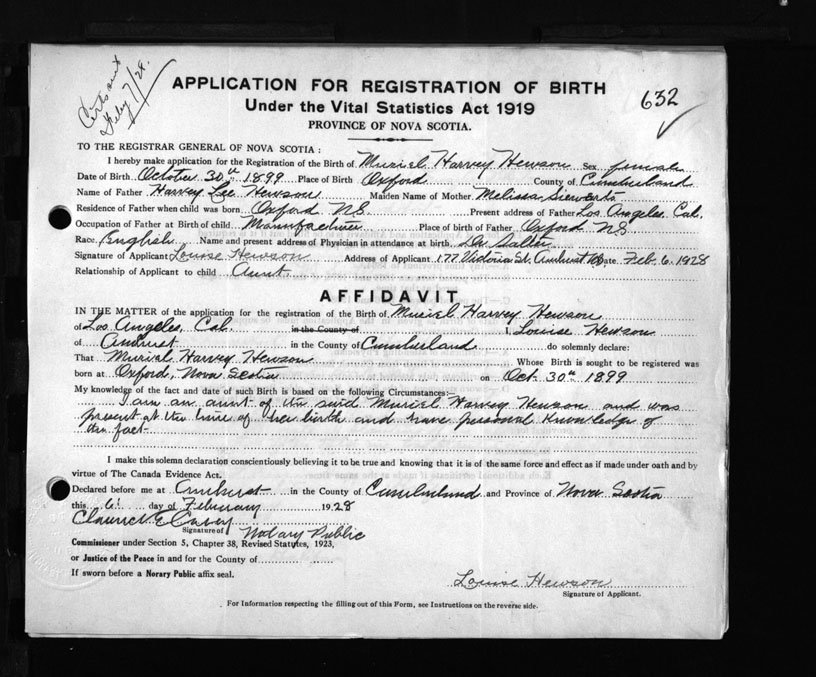 Certs out
Feby 7/28.
632
APPLICATION FOR REGISTRATION OF BIRTH
Under the Vital Statistics Act 1919
PROVINCE OF NOVA SCOTIA.
TO THE REGISTRAR GENERAL OF NOVA SCOTIA :
I hereby make application for the Registration of the Birth of Muriel Harvey Hewson Sex female
Date of Birth October 30th 1899 Place of Birth Oxford County of Cumberland
Name of Father Harvey Lee Hewson Maiden Name of Mother Melissa
Residence of Father when child was born Oxford N.S. Present address of Father Los Angeles, Cal.
Occupation of Father at Birth of child Manufacturer Place of birth of Father Oxford N.S.
Race English Name and present address of Physician in attendance at birth Dr Salter
Signature of Applicant Louise Hewson Address of Applicant 177 Victoria St. Amherst N.S. Date Feb. 6, 1928
Relationship of Applicant to child Aunt.
AFFIDAVIT
IN THE MATTER of the application for the registration of the Birth of Muriel Harvey Hewson
of Los Angeles, Cal. in the County of I, Louise Hewson
of Amherst in the County of Cumberland do solemnly declare:
That Muriel Harvey Hewson Whose Birth is sought to be registered was
born at Oxford, Nova Scotia on Oct. 30th 1899
My knowledge of the fact and date of such Birth is based on the following Circumstances:
I am an aunt of the said Muriel Harvey Hewson and was
present at the time of her birth and have personal knowledge of
the fact
I make this solemn declaration conscientiously believing it to be true and knowing that it is of the same force and effect as if made under oath and by
virtue of The Canada Evidence Act.
Declared before me at Amherst in the County of Cumberland and Province of Nova Scotia
this 6 day of February 1928
Signature of Notary Public
Commissioner under Section 5, Chapter 38, Revised Statutes, 1923,
or Justice of the Peace in and for the County of
If sworn before a Norary Public affix seal.
Louise Hewson
Signature of Applicant.
For Information respecting the filling out of this Form, see Instructions on the reverse side.